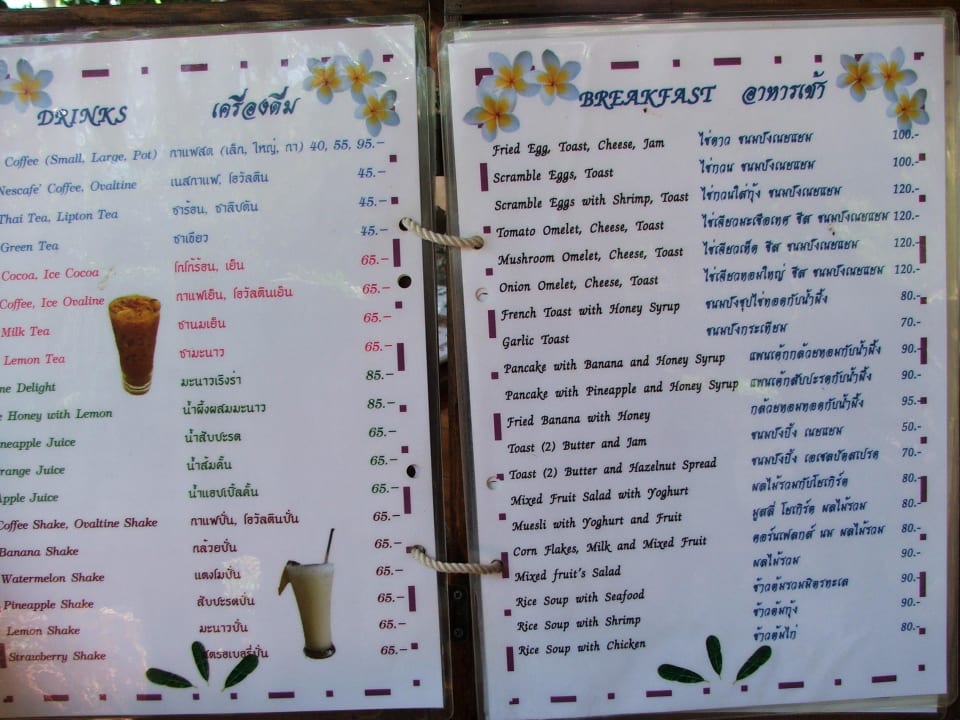 DRINKS เครื่องดื่ม
Coffee (Small, Large, Pot) กาแฟสด (เล็ก, ใหญ่, กา) 40, 55, 95.-
Nescafe' Coffee, Ovaltine เนสกาแฟ, โอวัลติน 45.-
Thai Tea, Lipton Tea ชาร้อน, ชาลิปตัน 45.-
Green Tea ชาเขียว 45.-
Cocoa, Ice Cocoa โกโก้ร้อน, เย็น 65.-
Coffee, Ice Ovaltine กาแฟเย็น, โอวัลตินเย็น 65.-
Milk Tea ชานมเย็น 65.-
Lemon Tea ชามะนาว 65.-
Delight มะนาวเริงร่า 85.-
Honey with Lemon น้ำผึ้งผสมมะนาว 85.-
Pineapple Juice น้ำสับปะรด 65.-
Orange Juice น้ำส้มคั้น 65.-
Apple Juice น้ำแอปเปิ้ลคั้น 65.-
Coffee Shake, Ovaltine Shake กาแฟปั่น, โอวัลตินปั่น 65.-
Banana Shake กล้วยปั่น 65.-
Watermelon Shake แตงโมปั่น 65.-
Pineapple Shake สับปะรดปั่น 65.-
Lemon Shake มะนาวปั่น 65.-
Strawberry Shake สตรอเบอรี่ปั่น 65.-
BREAKFAST อาหารเช้า
Fried Egg, Toast, Cheese, Jam ไข่ดาว ขนมปังเนยแยม 100.-
Scramble Eggs, Toast ไข่กวน ขนมปังเนยแยม 100.-
Scramble Eggs with Shrimp, Toast ไข่กวนใส่กุ้ง ขนมปังเนยแยม 120.-
Tomato Omelet, Cheese, Toast ไข่เจียวมะเขือเทศ ชีส ขนมปังเนยแยม 120.-
Mushroom Omelet, Cheese, Toast ไข่เจียวเห็ด ชีส ขนมปังเนยแยม 120.-
Onion Omelet, Cheese, Toast ไข่เจียวหอมใหญ่ ชีส ขนมปังเนยแยม 120.-
French Toast with Honey Syrup ขนมปังชุปไข่ทอดกับน้ำผึ้ง 80.-
Garlic Toast ขนมปังกระเทียม 70.-
Pancake with Banana and Honey Syrup แพนเค้กกล้วยหอมกับน้ำผึ้ง 90.-
Pancake with Pineapple and Honey Syrup แพนเค้กสับปะรดกับน้ำผึ้ง 90.-
Fried Banana with Honey กล้วยหอมทอดกับน้ำผึ้ง 95.-
Toast (2) Butter and Jam ขนมปังปิ้ง เนยแยม 50.-
Toast (2) Butter and Hazelnut Spread ขนมปังปิ้ง เฮเซลนัตสเปรด 70.-
Mixed Fruit Salad with Yoghurt ผลไม้รวมกับโยเกิร์ต 80.-
Muesli with Yoghurt and Fruit มูสลี่ โยเกิร์ต ผลไม้รวม 80.-
Corn Flakes, Milk and Mixed Fruit คอร์นเฟลกส์ นม ผลไม้รวม 80.-
Mixed fruit's Salad ผลไม้รวม 90.-
Rice Soup with Seafood ข้าวต้มรวมมิตรทะเล 90.-
Rice Soup with Shrimp ข้าวต้มกุ้ง 90.-
Rice Soup with Chicken ข้าวต้มไก่ 80.-